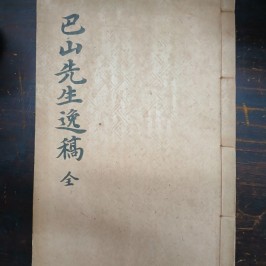 巴山先生逸稿 全